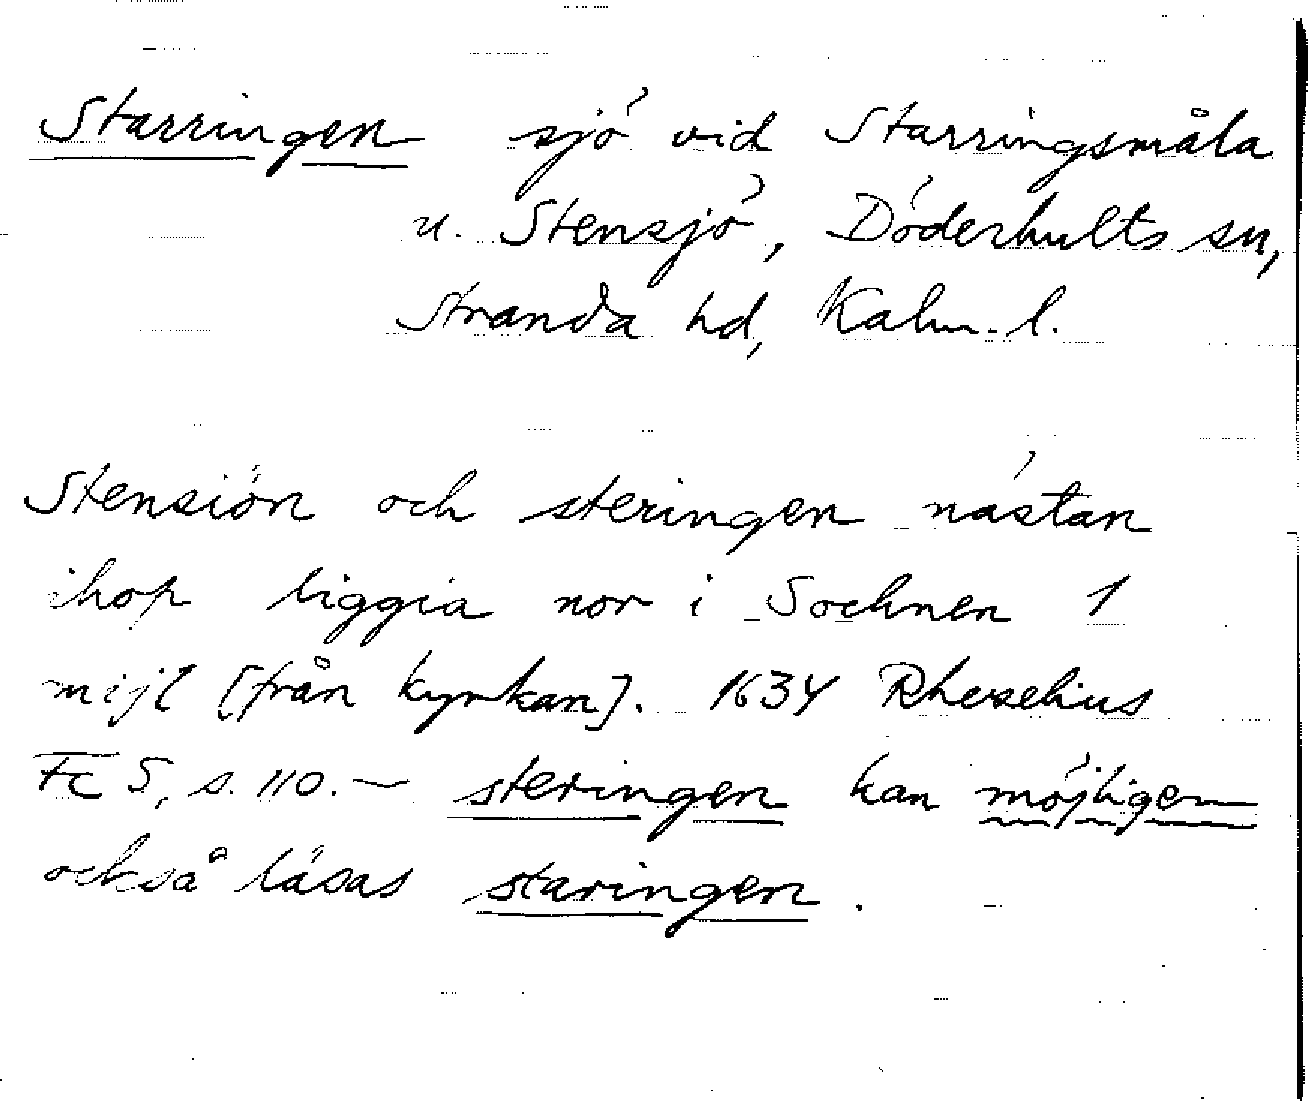 Starringen sjö vid Starringsmåla
u. Stensjö, Döderhults sn,
Stranda hd, Kalm. l.
Stensiön och steringen nästan
ihop liggia nor i Sochnen 1
mijl [från kyrkan]. 1634 Rhezelius
Fc 5, s. 110. — steringen kan möjligen
också läsas staringen.